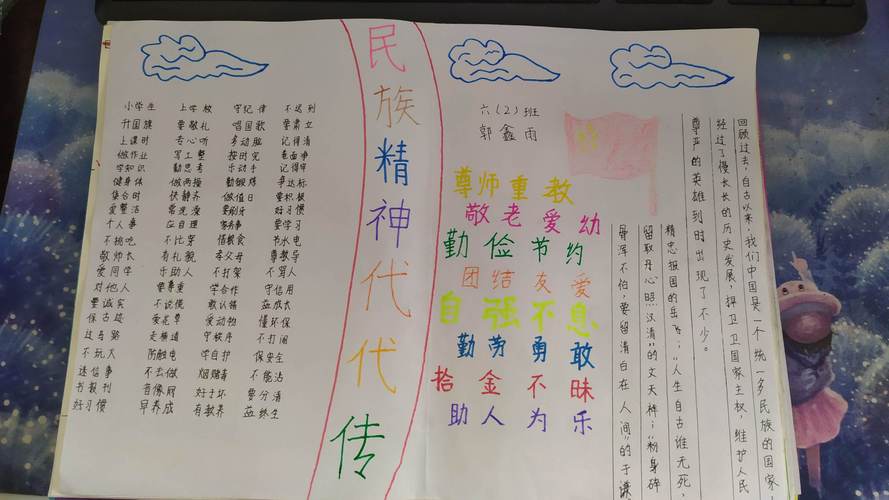 小学生 上学校 守纪律 不迟到
升国旗 要敬礼 唱国歌 要肃立
上课时 专心听 多动脑 记得清
做作业 写工整 按时完 卷面净
学知识 勤思考 乐动手 记得牢
健身体 做两操 勤锻炼 争达标
集会时 快静齐 做值日 要积极
爱整洁 常洗澡 要刷牙 好习惯
个人事 应自理 家务事 要学习
不挑吃 不比穿 惜粮食 节水电
敬师长 有礼貌 孝父母 遵教导
爱同学 乐助人 不打架 不骂人
对他人 要尊重 学合作 守信用
要诚实 不说慌 敢认错 益成长
保古迹 爱花草 爱动物 懂环保
过马路 走横道 守秩序 不打闹
不玩火 防触电 学自护 保安全
迷信事 不去做 烟赌毒 不能沾
书报刊 音像网 好于坏 要分清
好习惯 早养成 有教养 益终生
民族精神代代传
六(2)班
郭鑫雨
尊师重教
敬老爱幼
勤俭节约
团结友爱
自强不息
勤劳勇敢
拾金不昧
助人为乐
回顾过去,自古以来,我们中国是一个统一多民族的国家
经过了慢长长的历史发展,捍卫卫国家主权,维护人民
尊严的英雄到时出现了不少。
精忠报国的岳飞;"人生自古谁无死,
留取丹心照汉清"的文天祥;"粉身碎
骨浑不怕,要留清白在人间"的于谦